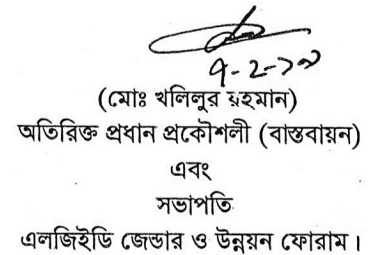 ৭-২-১৯
(মোঃ খলিলুর রহমান)
অতিরিক্ত প্রধান প্রকৌশলী (বাস্তবায়ন)
এবং
সভাপতি
এলজিইডি জেন্ডার ও উন্নয়ন ফোরাম।